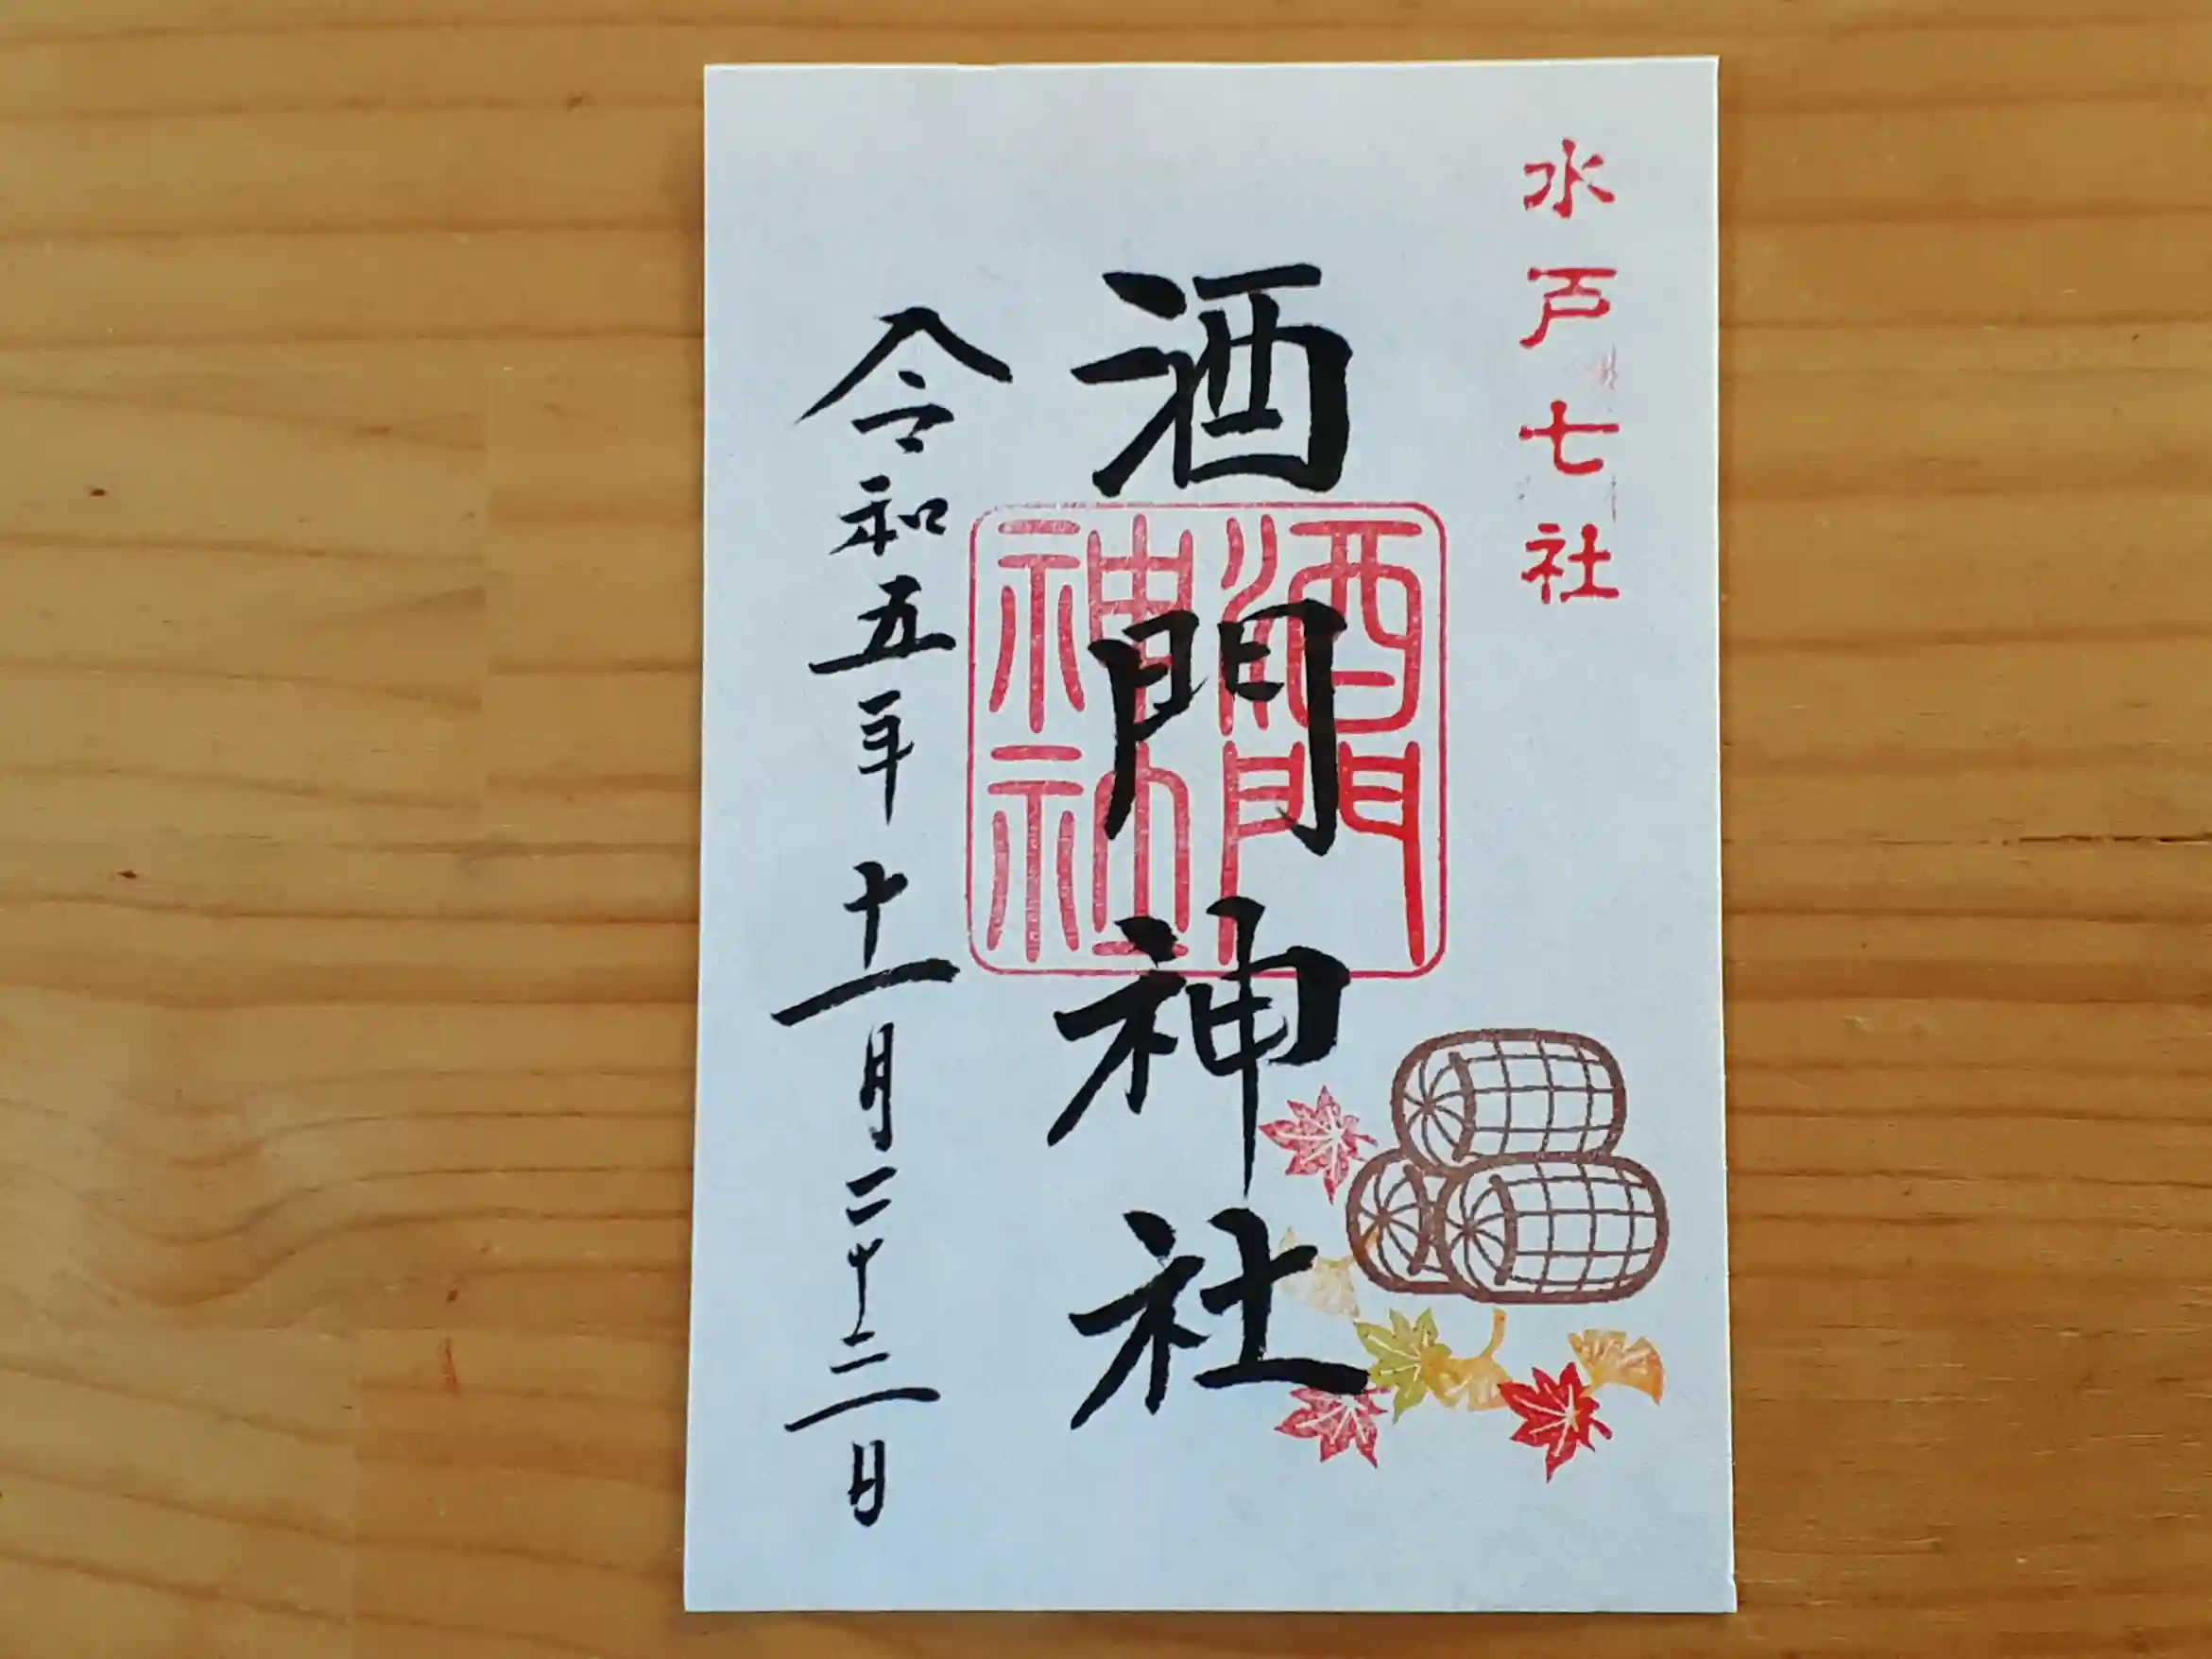 水戸七社
酒門神社
酒門
神社
令和五年十一月二十三日